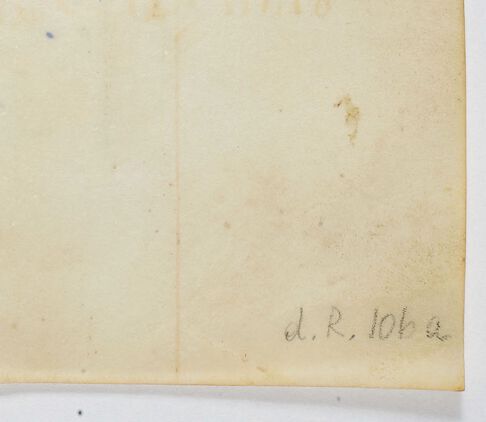 d. R. 106 a